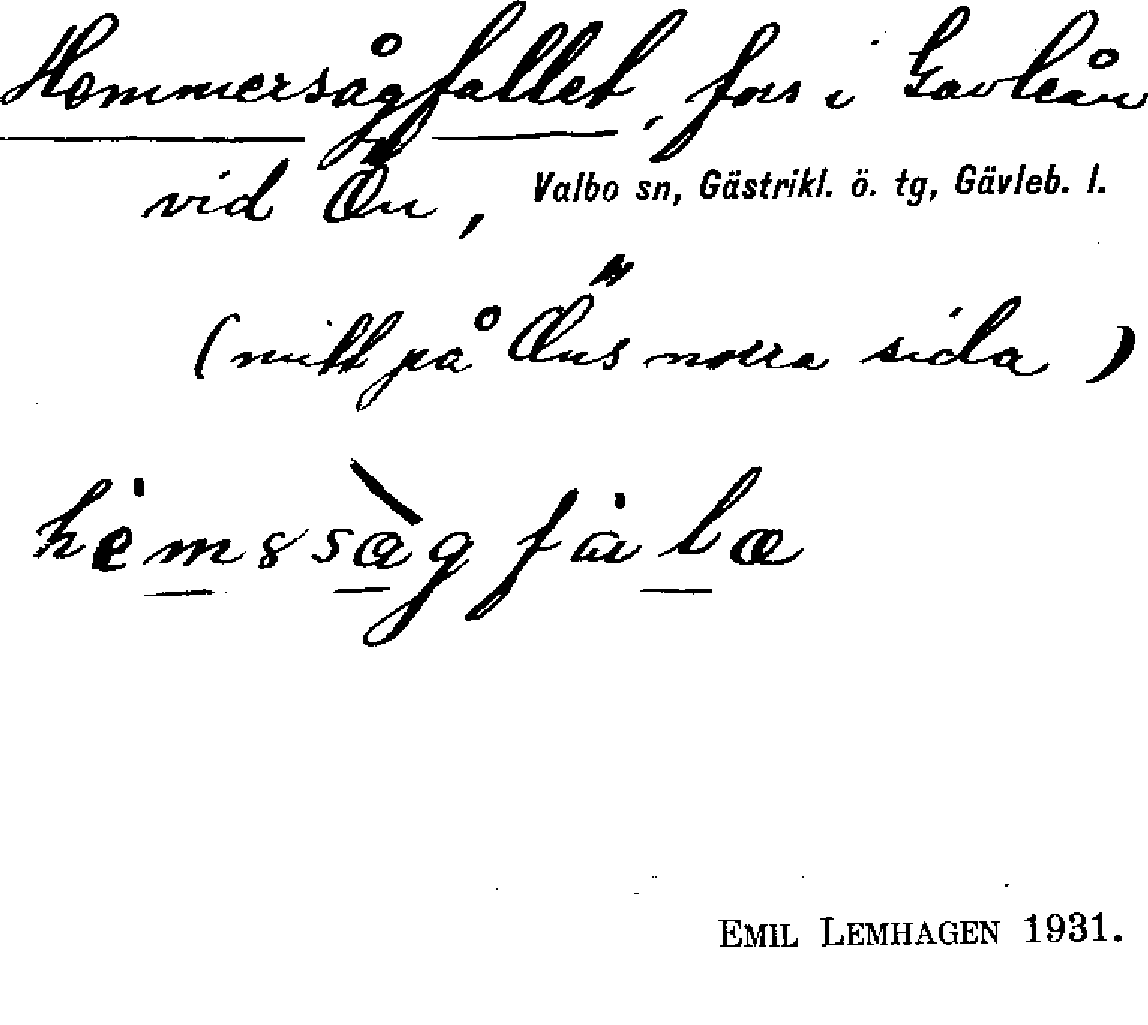 Hemmersågfallet, fors i Gavleån
vid Ön, Valbo sn, Gästrikl. ö. tg, Gävleb. l.
(mitt på Öns norra sida)
EMIL LEMHAGEN 1931.